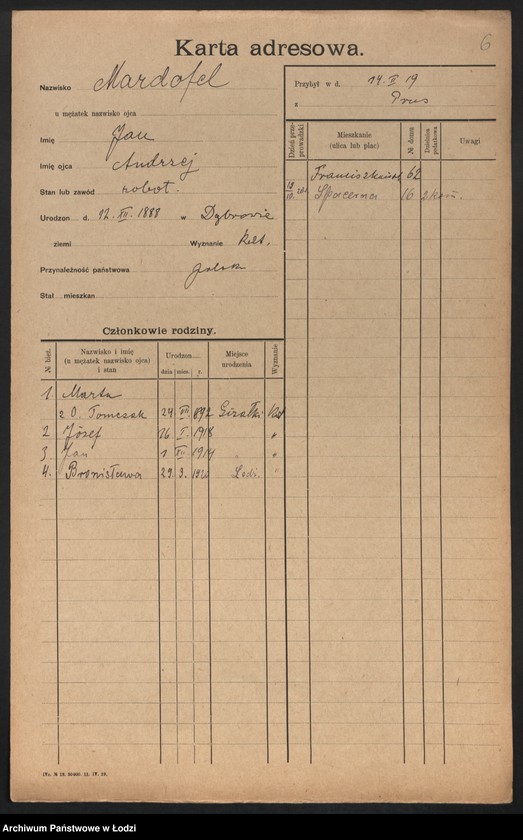 Karta adresowa.
6
Nazwisko Mardofel
u mężatek nazwisko ojca
Imię Jan
Imię ojca Andrzej
Stan lub zawód robot.
Urodzon d. 12.XII.1888 w Dąbrowie
ziemi Wyznanie
Przynależność państwowa polsk
Stał. mieszkan
Przybył w d. 14.X 19
z Prus
Dzień przeprowadzki
Mieszkanie (ulica lub plac)
№ domu
Dzielnica podatkowa
Uwagi
62
Spacerna 16
Członkowie rodziny.
№ bież.
Nazwisko i imię (u mężatek nazwisko ojca) i stan
Urodzon
dnia mies. r.
Miejsce urodzenia
Wyznanie
1. Marta
z O. Tomczak 24 VII 892 Gizałki
2 Józef 16 I. 1918 "
3 Jan 1 XII 1914 "
4. Bronisława 29 3. 1920 "
Archiwum Państwowe w Łodzi